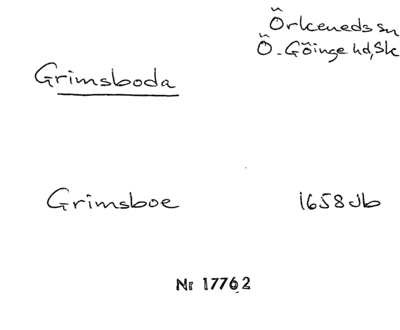 Örkeneds sn
Ö. Göinge hd, Sk
Grimsboda
Grimsboe 1658 Jb
Nr 17762